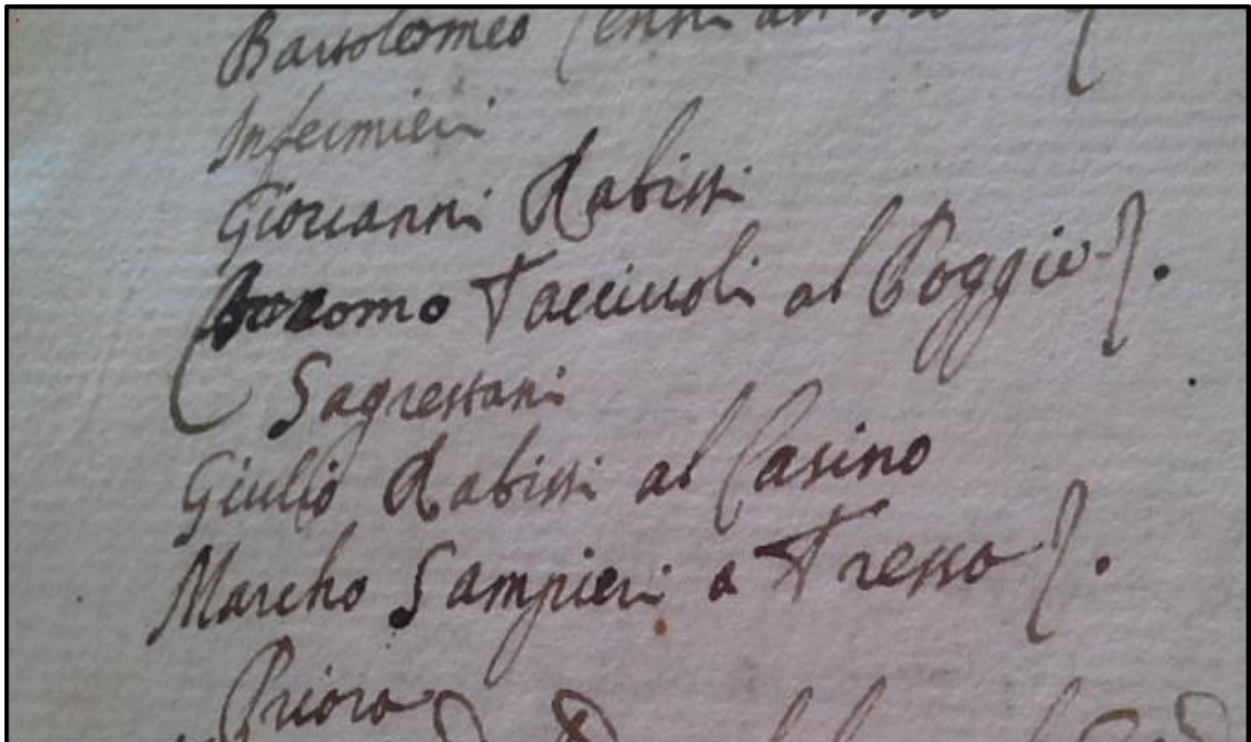 Bartolomeo
Infermieri
Giovanni Rabissi
Jacomo Tacciuoli al Poggio
Sagrestani
Giulio Rabissi al Casino
Marcho Sampieri a Tressa
Priora